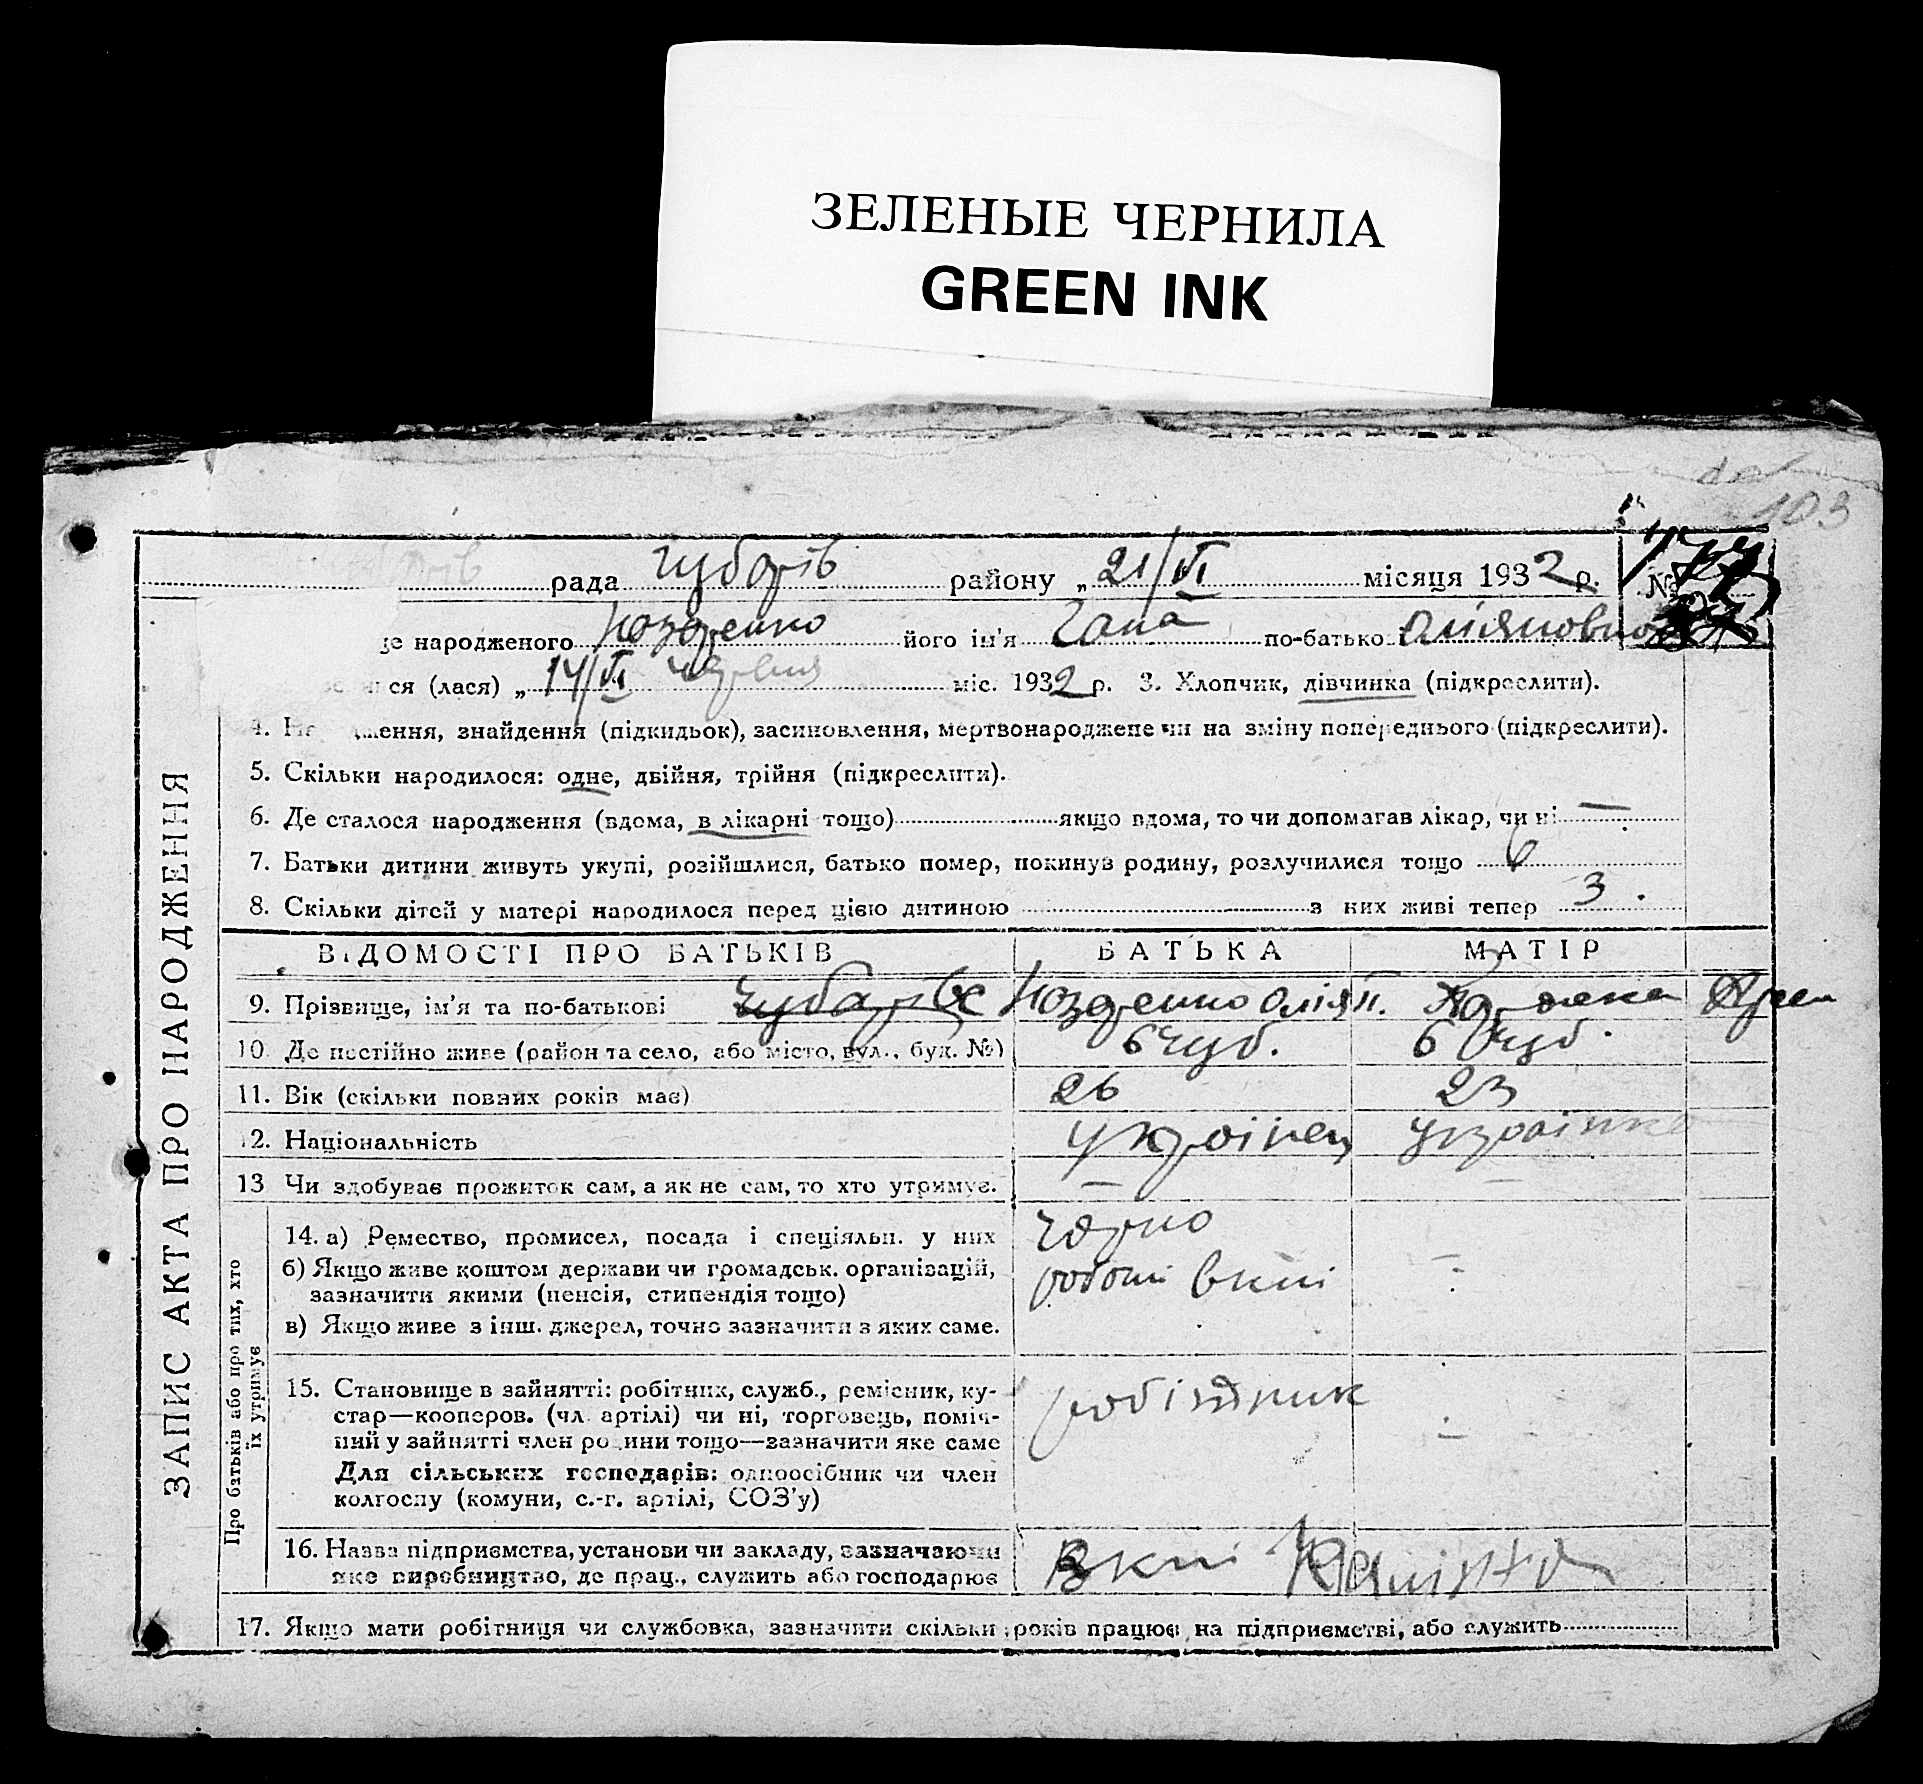 ЗЕЛЕНЫЕ ЧЕРНИЛА
GREEN INK
103
рада Чубарів району „ 21/VI місяця 1932 р. №
це народженого його ім'я по-батькові
ся (лася) „ 14/VI червня міс. 1932 р. 3. Хлопчик, дівчинка (підкреслити).
4. знайдення (підкидьок), засиновлення, мертвонароджене чи на зміну попереднього (підкреслити).
5. Скільки народилося: одне, двійня, трійня (підкреслити).
6. Де сталося народження (вдома, в лікарні тощо) якщо вдома, то чи допомагав лікар, чи ні —
7. Батьки дитини живуть укупі, розійшлися, батько помер, покинув родину, розлучилися тощо
8. Скільки дітей у матері народилося перед цією дитиною з них живі тепер 3.
ВІДОМОСТІ ПРО БАТЬКІВ БАТЬКА МАТІР
9. Прізвище, ім'я та по-батькові
10. Де постійно живе (район та село, або місто, вул., буд. №) Чуб. Чуб.
11. Вік (скільки повних років має) 26 23
12. Національність Українец українка
13 Чи здобуває прожиток сам, а як не сам, то хто утримує. — —
14. а) Ремество, промисел, посада і спеціяльн. у них
б) Якщо живе коштом держави чи громадськ. організацій,
зазначити якими (пенсія, стипендія тощо)
в) Якщо живе з інш. джерел, точно зазначити з яких саме.
чорно
15. Становище в зайнятті: робітник, служб., ремісник, ку-
стар—кооперов. (чл. артілі) чи ні, торговець, поміч-
ний у зайнятті член родини тощо—зазначити яке саме
Для сільських господарів: одноосібник чи член
колгоспу (комуни, с.-г. артілі, СОЗ'у)
робітник
16. Назва підприємства, установи чи закладу, зазначаючи
яке виробництво, де прац., служить або господарює
17. Якщо мати робітниця чи службовка, зазначити скільки років працює на підприємстві, або служить
ЗАПИС АКТА ПРО НАРОДЖЕННЯ
Про батьків або про тих, хто
їх утримує